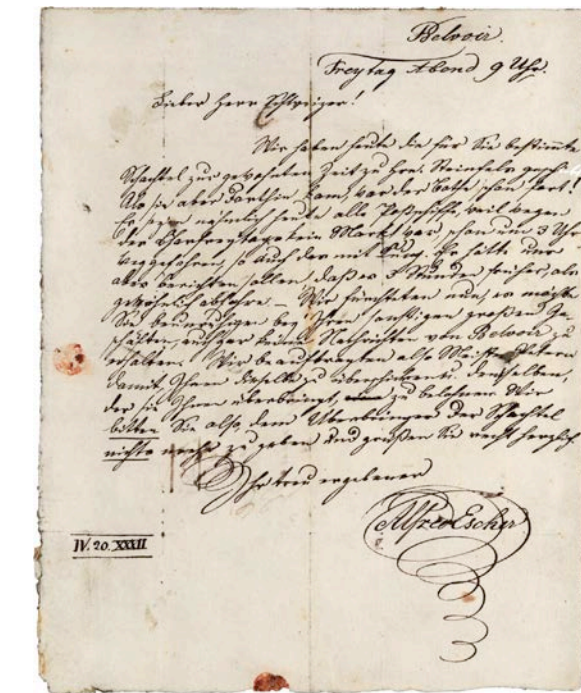 Belvoir.
Freytag Abend 9 Uhr.
Lieber Herr Schweizer!
Wir haben heute die für Sie bestimmte
Schachtel zur gewohnten Zeit zu Steinfels
Als sie aber dorthin kam, war der Bothe schon fort!
Es seyen nähmlich heute alle weil wegen
des Charfreytags kein Markt war, schon um 3 Uhr
weggefahren, so auch der mit Er hätte uns
aber berichten sollen, daß er 3 Stunden früher, als
gewöhnlich abfahre – Wir fürchteten nun, es möchte
Sie beunruhigen bey Ihren sonstigen großen Ge-
schäften, auch gar keine Nachrichten von Belvoir zu
erhalten. Wir beauftragten also
damit, Ihnen dieselbe zu überschicken u. demselben,
der sie Ihnen überbringt, zu belohnen. Wir
bitten Sie also, dem Überbringer der Schachtel
nichts mehr zu geben und grüßen Sie recht herzlich
Ihr treu ergebener
Alfred Escher
IV. 20. XXXII